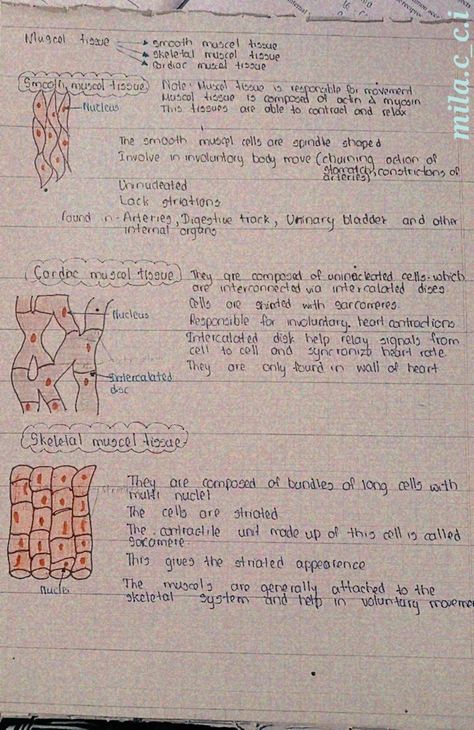 Muscol tissue → smooth muscel tissue
→ skeletal muscol tissue
→ Cardiac muscol tissue
Smooth muscol tissue
Nucleus
Note: Muscol tissue is responsible for movement
Muscol tissue is composed of actin & myosin
This tissues are able to contract and relax
The smooth muscel cells are spindle shaped
Involve in involuntary body move (churning action of
stomatch, constrictons of
arteries)
Uninucleated
Lack striations
found in - Arteries, Digestive track, Urinary bladder and other
internal organs
Cardiac muscol tissue
They are composed of uninucleated cells which
are interconnected via intercalated discs
Cells are striated with sarcomeres.
Responsible for involuntary heart contractions
Intercalated disk help relay signals from
cell to cell and syncroniz heart rate
They are only found in wall of heart
Nucleus
Intercalated
disc
Skeletal muscel tissue
They are composed of bundles of long cells with
multi nuclei
The cells are striated
The contractile unit made up of this cell is called
sarcomere
This gives the striated appearence
The muscols are generally attached to the
skeletal system and help in voluntary movemen
Nuclei
mila.c.ci